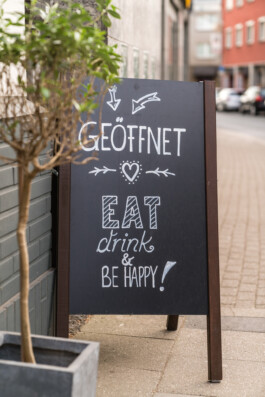 GEÖFFNET
EAT
drink
&
BE HAPPY!